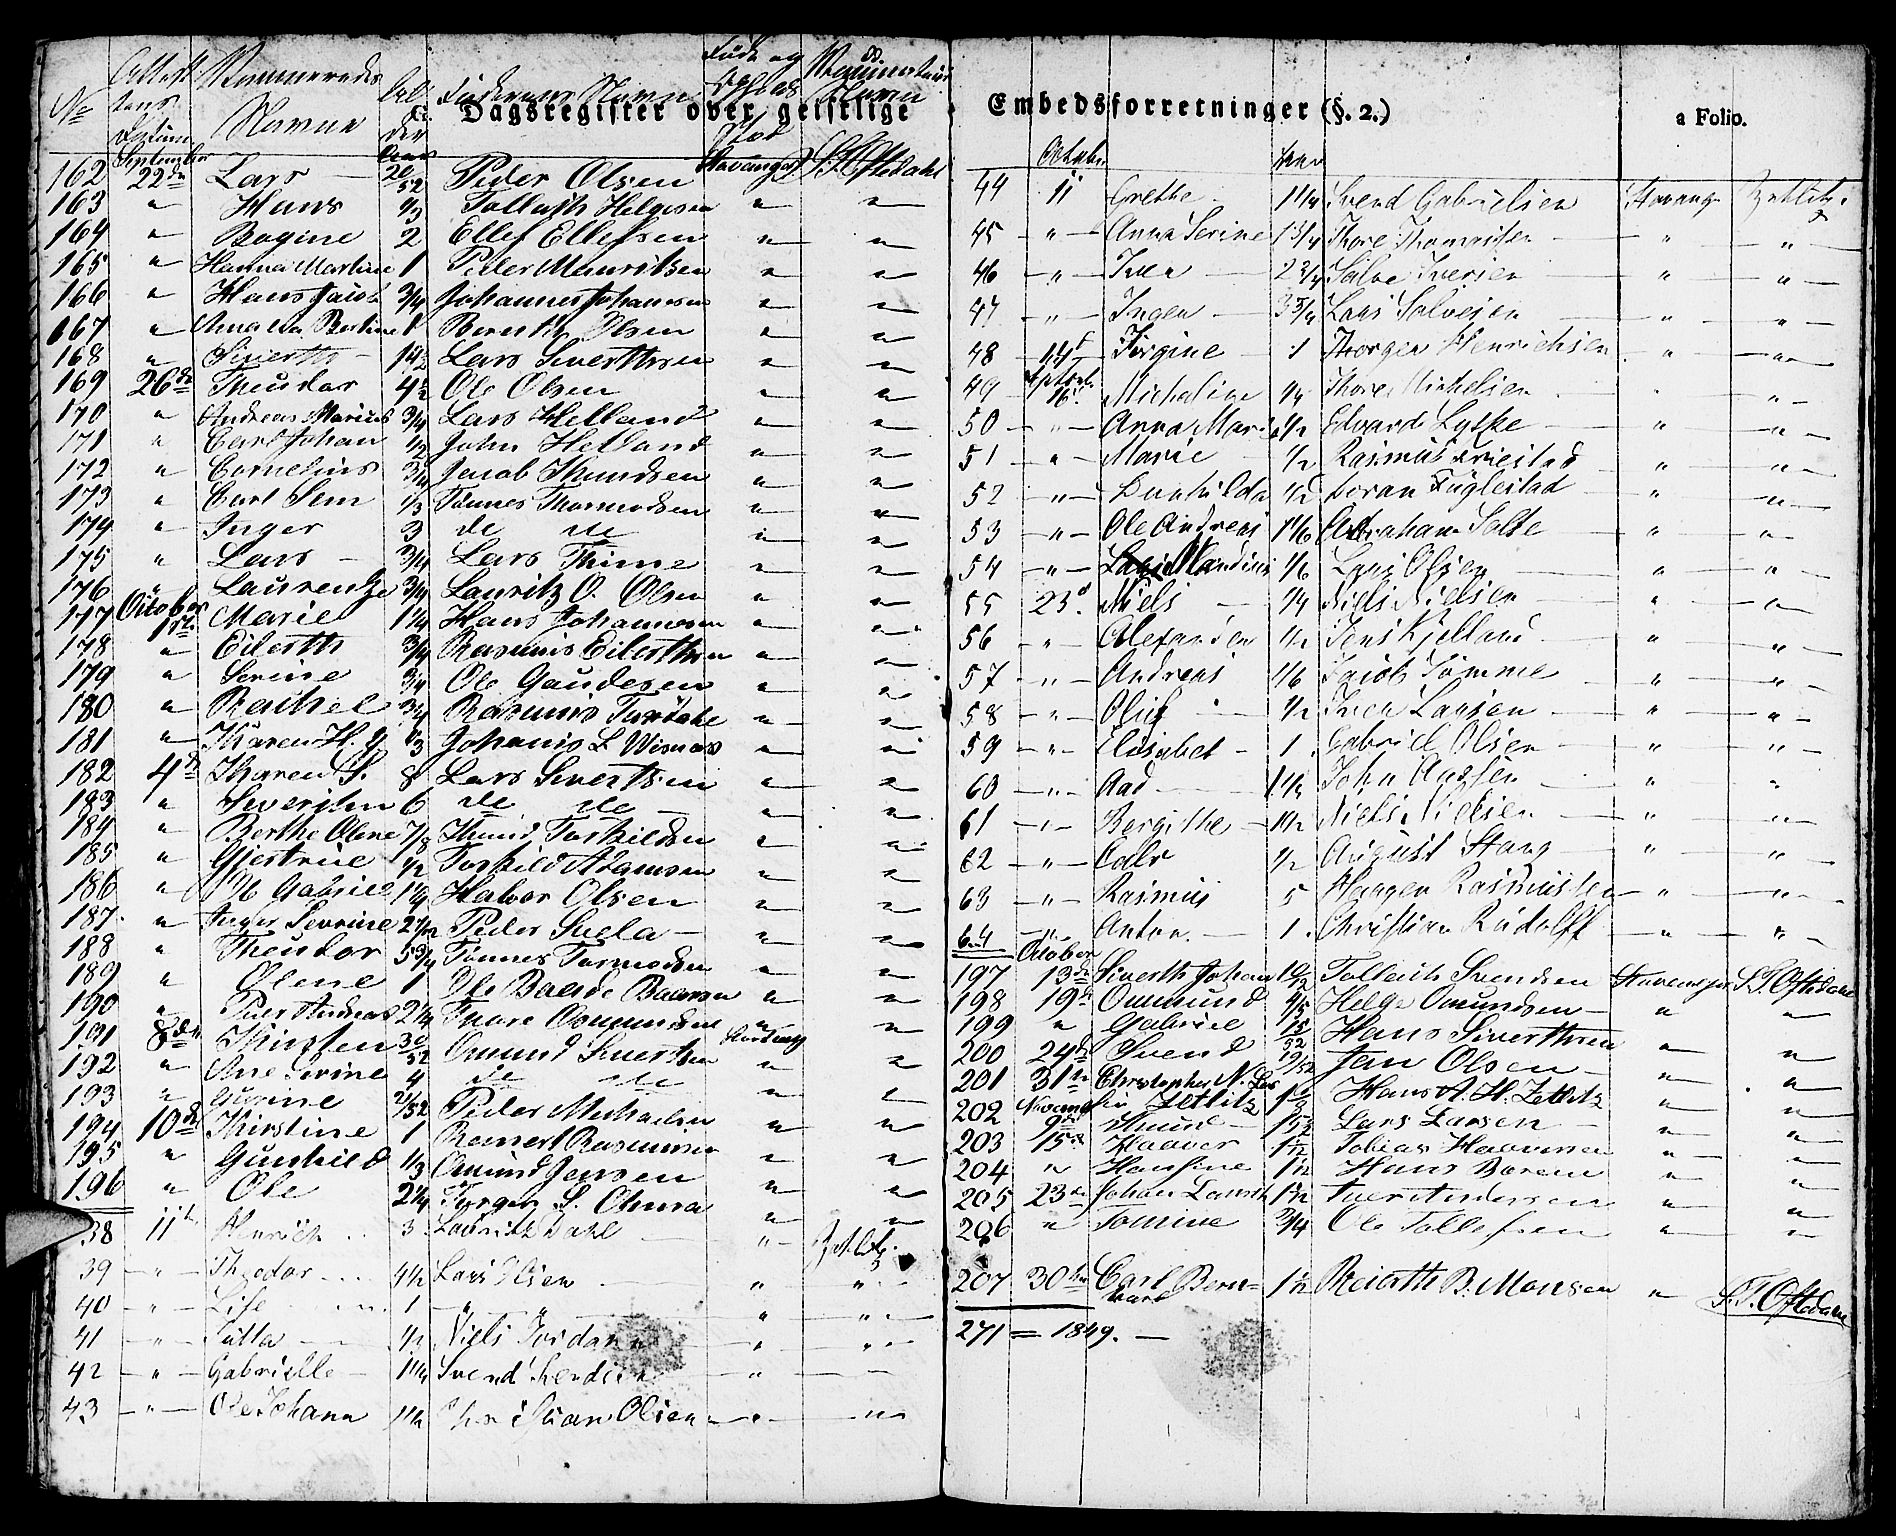 Dagsregister over geistlige
No Attestens Datum Navne Alder Faderens Navn Føde og Opholds Sted Navn
September Aar
162 22de Lars 20/52 Peder Olsen Stavanger S. T. Oftedahl
163 " Hans 1/3 Tollach Helgesen " "
164 " Bagine 2 Ellef Ellefsen " "
165 " Hanna Martine 1 Peder Mauritsen " "
166 " Hans Jacob 3/4 Johannes Johannesen " "
167 " Amalia Bertine 1 Berent Olsen " "
168 " Siverth 1 1/2 Lars Siverthsen " "
169 26de Theodor 4 1/2 Ole Olsen " "
170 " Andreas Marius 3/4 Lars Helland " "
171 " Carl Johan 1/2 John Helland " "
172 " Cornelius 3/4 Jacob Knundsen " "
173 " Carl Sem 1/3 Tönnes Thormodsen " "
174 " Inger 3 de de " "
175 " Lars 3/4 Lars Thime " "
176 " Laurentze 3/4 Lauritz O. Olsen " "
October
177 1ste Marie 1 1/4 Hans Johannesen " "
178 " Eilerth 3/4 Rasmus Eilerthsen " "
179 " Serine 3/4 Ole Gaudesen " "
180 " Rachel 3/4 Rasmus " "
181 " Karen H. J. 1/3 Johanis L. Wisnæs " "
182 4de Karen S. 8 Lars Sivertsen " "
183 " Severine 6 de de " "
184 " Berthe Olene 7/8 Knud Torkildsen " "
185 " Gjertrue 1/2 Torkild Adamsen " "
186 " Gabriel 1 1/4 Halvor Olsen " "
187 " Inger Sevrine 2 1/2 Peder Suela " "
188 " Theodor 5 3/4 Tönnes Tormodsen " "
189 " Olene 1 Ole Baarde Baarsen " "
190 " Peer Andreas 2 1/4 Tore Osmundsen " "
191 8de Kirsten 30/52 Omund Sivertsen "
192 " Ane Serine 4 de de " "
193 " Gurine 21/52 Peder Michaelsen " "
194 10de Kirstine 1 Reinert Rasmussen " "
195 " Gunhild 1/3 Omund Jensen " "
196 " Ole 2 1/4 Torger S. Omra " "
38 11te Henrich 3 Lauritz Dahl " Zetlitz
39 " Theodor 4 1/2 Lars Olsen " "
40 " Lise 1 " " " "
41 " Jutta 1/2 Niels Jordan " "
42 " Gabrielle 1 1/4 Svend Svendsen " "
43 " Ole Johann 1 1/2 Christian Olsen " "
Embedsforretninger (§. 2.) a Folio.
October
44 11 Grethe 1 1/4 Svend Gabrielsen Stavanger Zetlitz
45 " Anna Serine 1 3/4 Thore Thomassen " "
46 " Iver 2 3/4 Salve Iversen " "
47 " Inger 3 3/4 Lars Salvesen " "
48 14 Jörgine 1 Thorger Henrichsen " "
49 16 Micheline 1/4 Thore Michelsen " "
50 " Anna Marie 1/2 Edvard Lykke " "
51 " Marie 1/2 Rasmus Friestad " "
52 " 1/2 Goran Fuglestad " "
53 " Ole Andreas 1 1/6 Abraham Salte " "
54 " 1/6 Lars Olsen " "
55 23d. Niels 1/4 Niels Nielsen " "
56 " Alexander 1/2 Jens Kjelland " "
57 " Andreas 1/6 Jacob Tömme " "
58 " Oluf 1/2 Iver Larsen " "
59 " Elisabet 1 Gabriel Olsen " "
60 " Aad John Aassen " "
61 " Bergithe 1 1/2 Niels Nielsen " "
62 " 1/2 August Stang " "
63 " Rasmus 5 Haagen Rasmussen " "
64 " Anton 1 Christian Rudolff " "
October
197 13de Siverth Johan 10/12 Tollach Svendsen Stavanger S. T. Oftedahl
198 19de Ommund 4/5 Helge Omundsen " "
199 " Gabriel 15/52 Hans Siverthsen " "
200 24de Svend 19/52 Jan Olsen " "
201 31te Christopher N. Lars Zetlitz Hans A. H. Zetlitz " "
November
202 9de Knud 1 1/2 Lars Larsen " "
203 15de Haaver 1 1/2 Tobias Haaversen " "
204 " Hansine 1 1/2 Hans Boren " "
205 23de Johan Lauritz 1 1/2 Iver Andersen " "
206 " Tomine 3/4 Ole Tollefsen " "
207 30te Carl Bern=
hard 1 1/2 Reierth B. Monsen " S. T. Oftedahl
271 = 1849. —